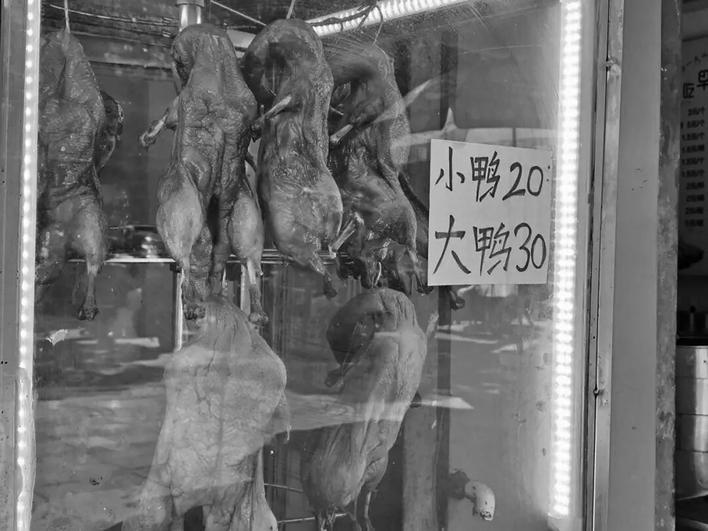 小鸭20
大鸭30